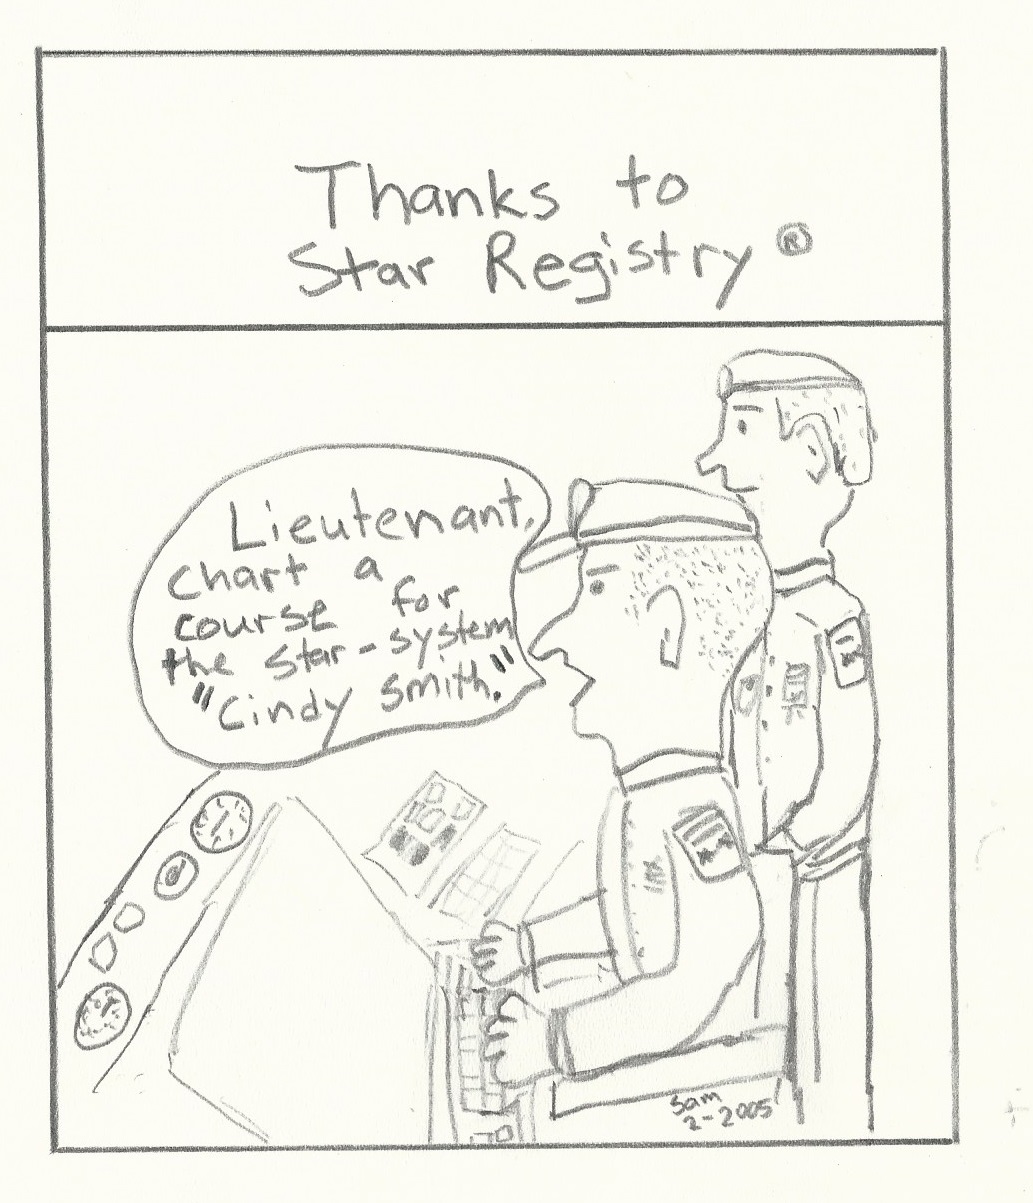 Thanks to
Star Registry ®
Lieutenant,
chart a
course for
the star-system
"Cindy Smith."
Sam
2-2005